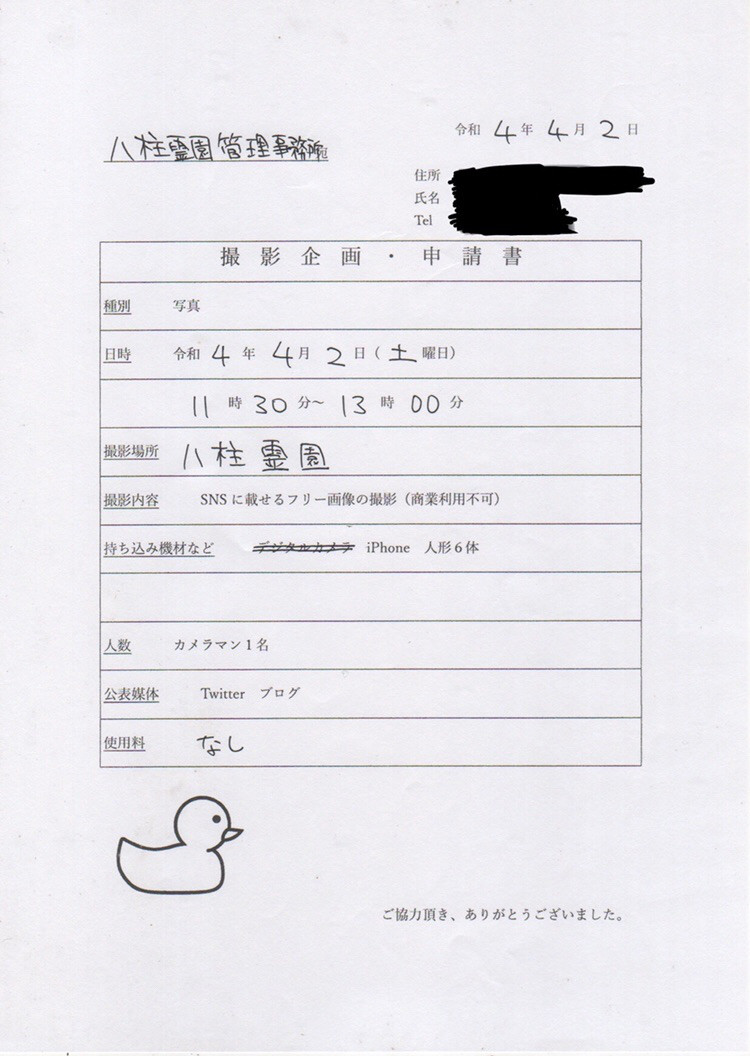 令和 4 年 4 月 2 日
八柱霊園管理事務所
住所
氏名
Tel
撮影企画・申請書
種別 写真
日時 令和 4 年 4 月 2 日(土曜日)
11 時 30 分〜 13 時 00 分
撮影場所 八柱霊園
撮影内容 SNSに載せるフリー画像の撮影(商業利用不可)
持ち込み機材など デジタルカメラ iPhone 人形6体
人数 カメラマン1名
公表媒体 Twitter ブログ
使用料 なし
ご協力頂き、ありがとうございました。